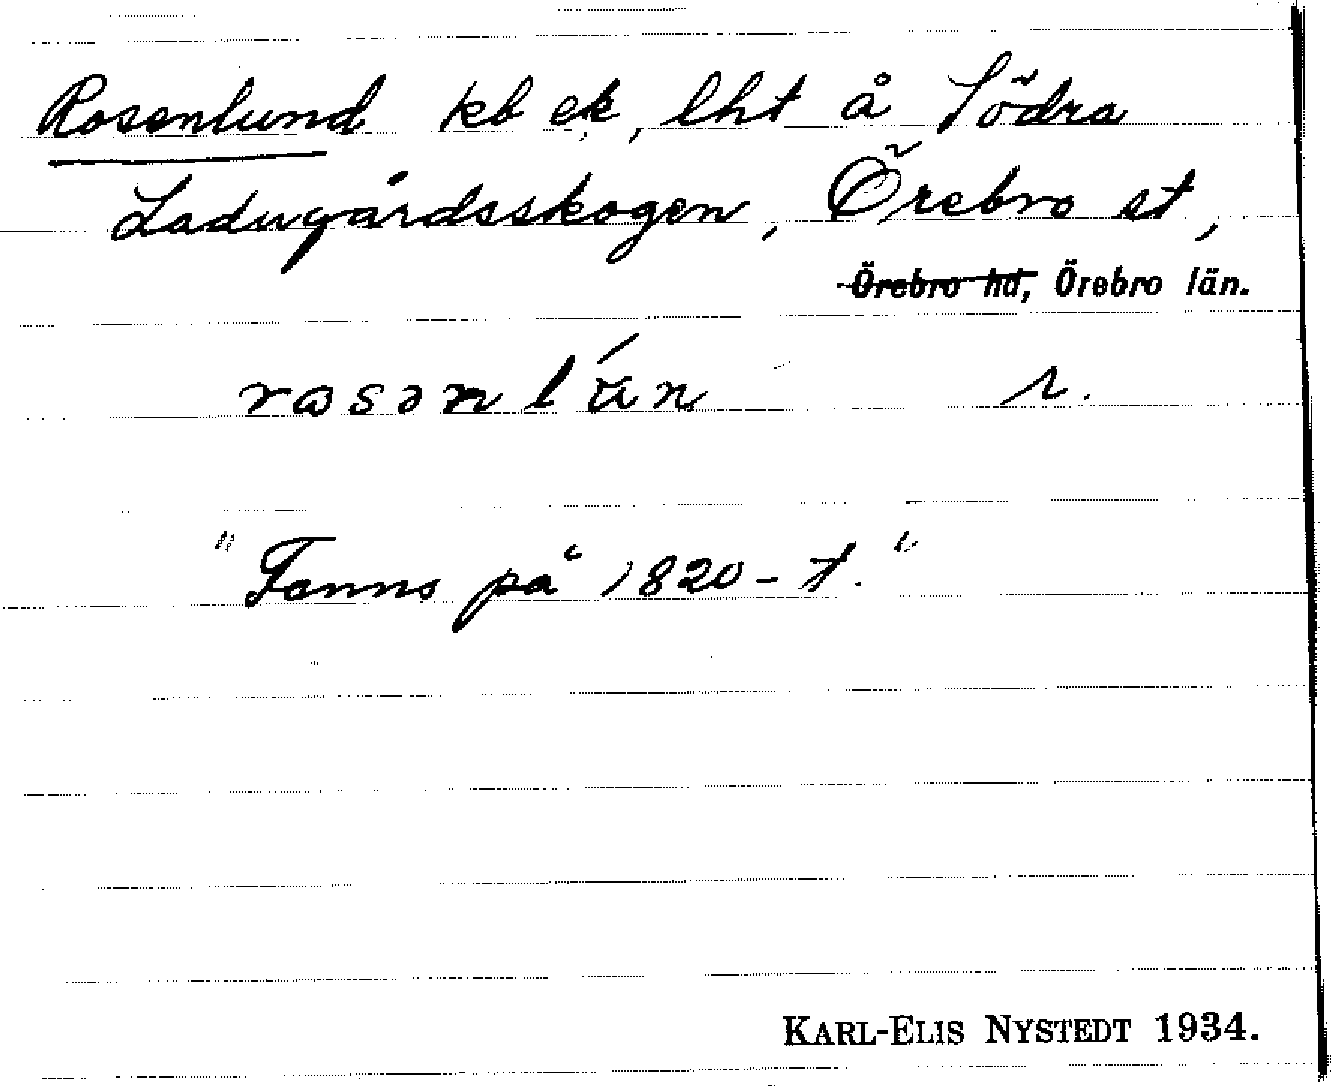 Rosenlund kb ek, lht å Södra
Ladugårdsskogen, Örebro st,
Örebro hd, Örebro län.
rosənlún r.
"Fanns på 1820-t."
KARL-ELIS NYSTEDT 1934.